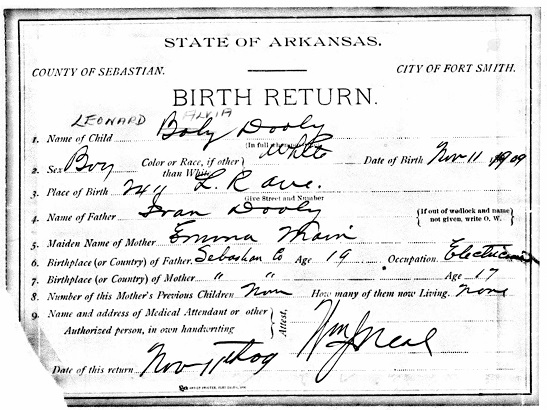 STATE OF ARKANSAS.
COUNTY OF SEBASTIAN. CITY OF FORT SMITH.
BIRTH RETURN.
LEONARD ALVIA
1. Name of Child Baby Dooly
(In full
2. Sex Boy Color or Race, if other than White White Date of Birth Nov 11 1909
3. Place of Birth L. R ave.
Give Street and Number
4. Name of Father Fran Dooly {If out of wedlock and name not given, write O. W.}
5. Maiden Name of Mother Emma
6. Birthplace (or Country) of Father Sebastian Co Age 19 Occupation Electrician
7. Birthplace (or Country) of Mother " " Age 17
8. Number of this Mother's Previous Children None How many of them now Living. None
9. Name and address of Medical Attendant or other Authorized person, in own handwriting } Attest, Wm J Neal
Date of this return Nov 11th 09